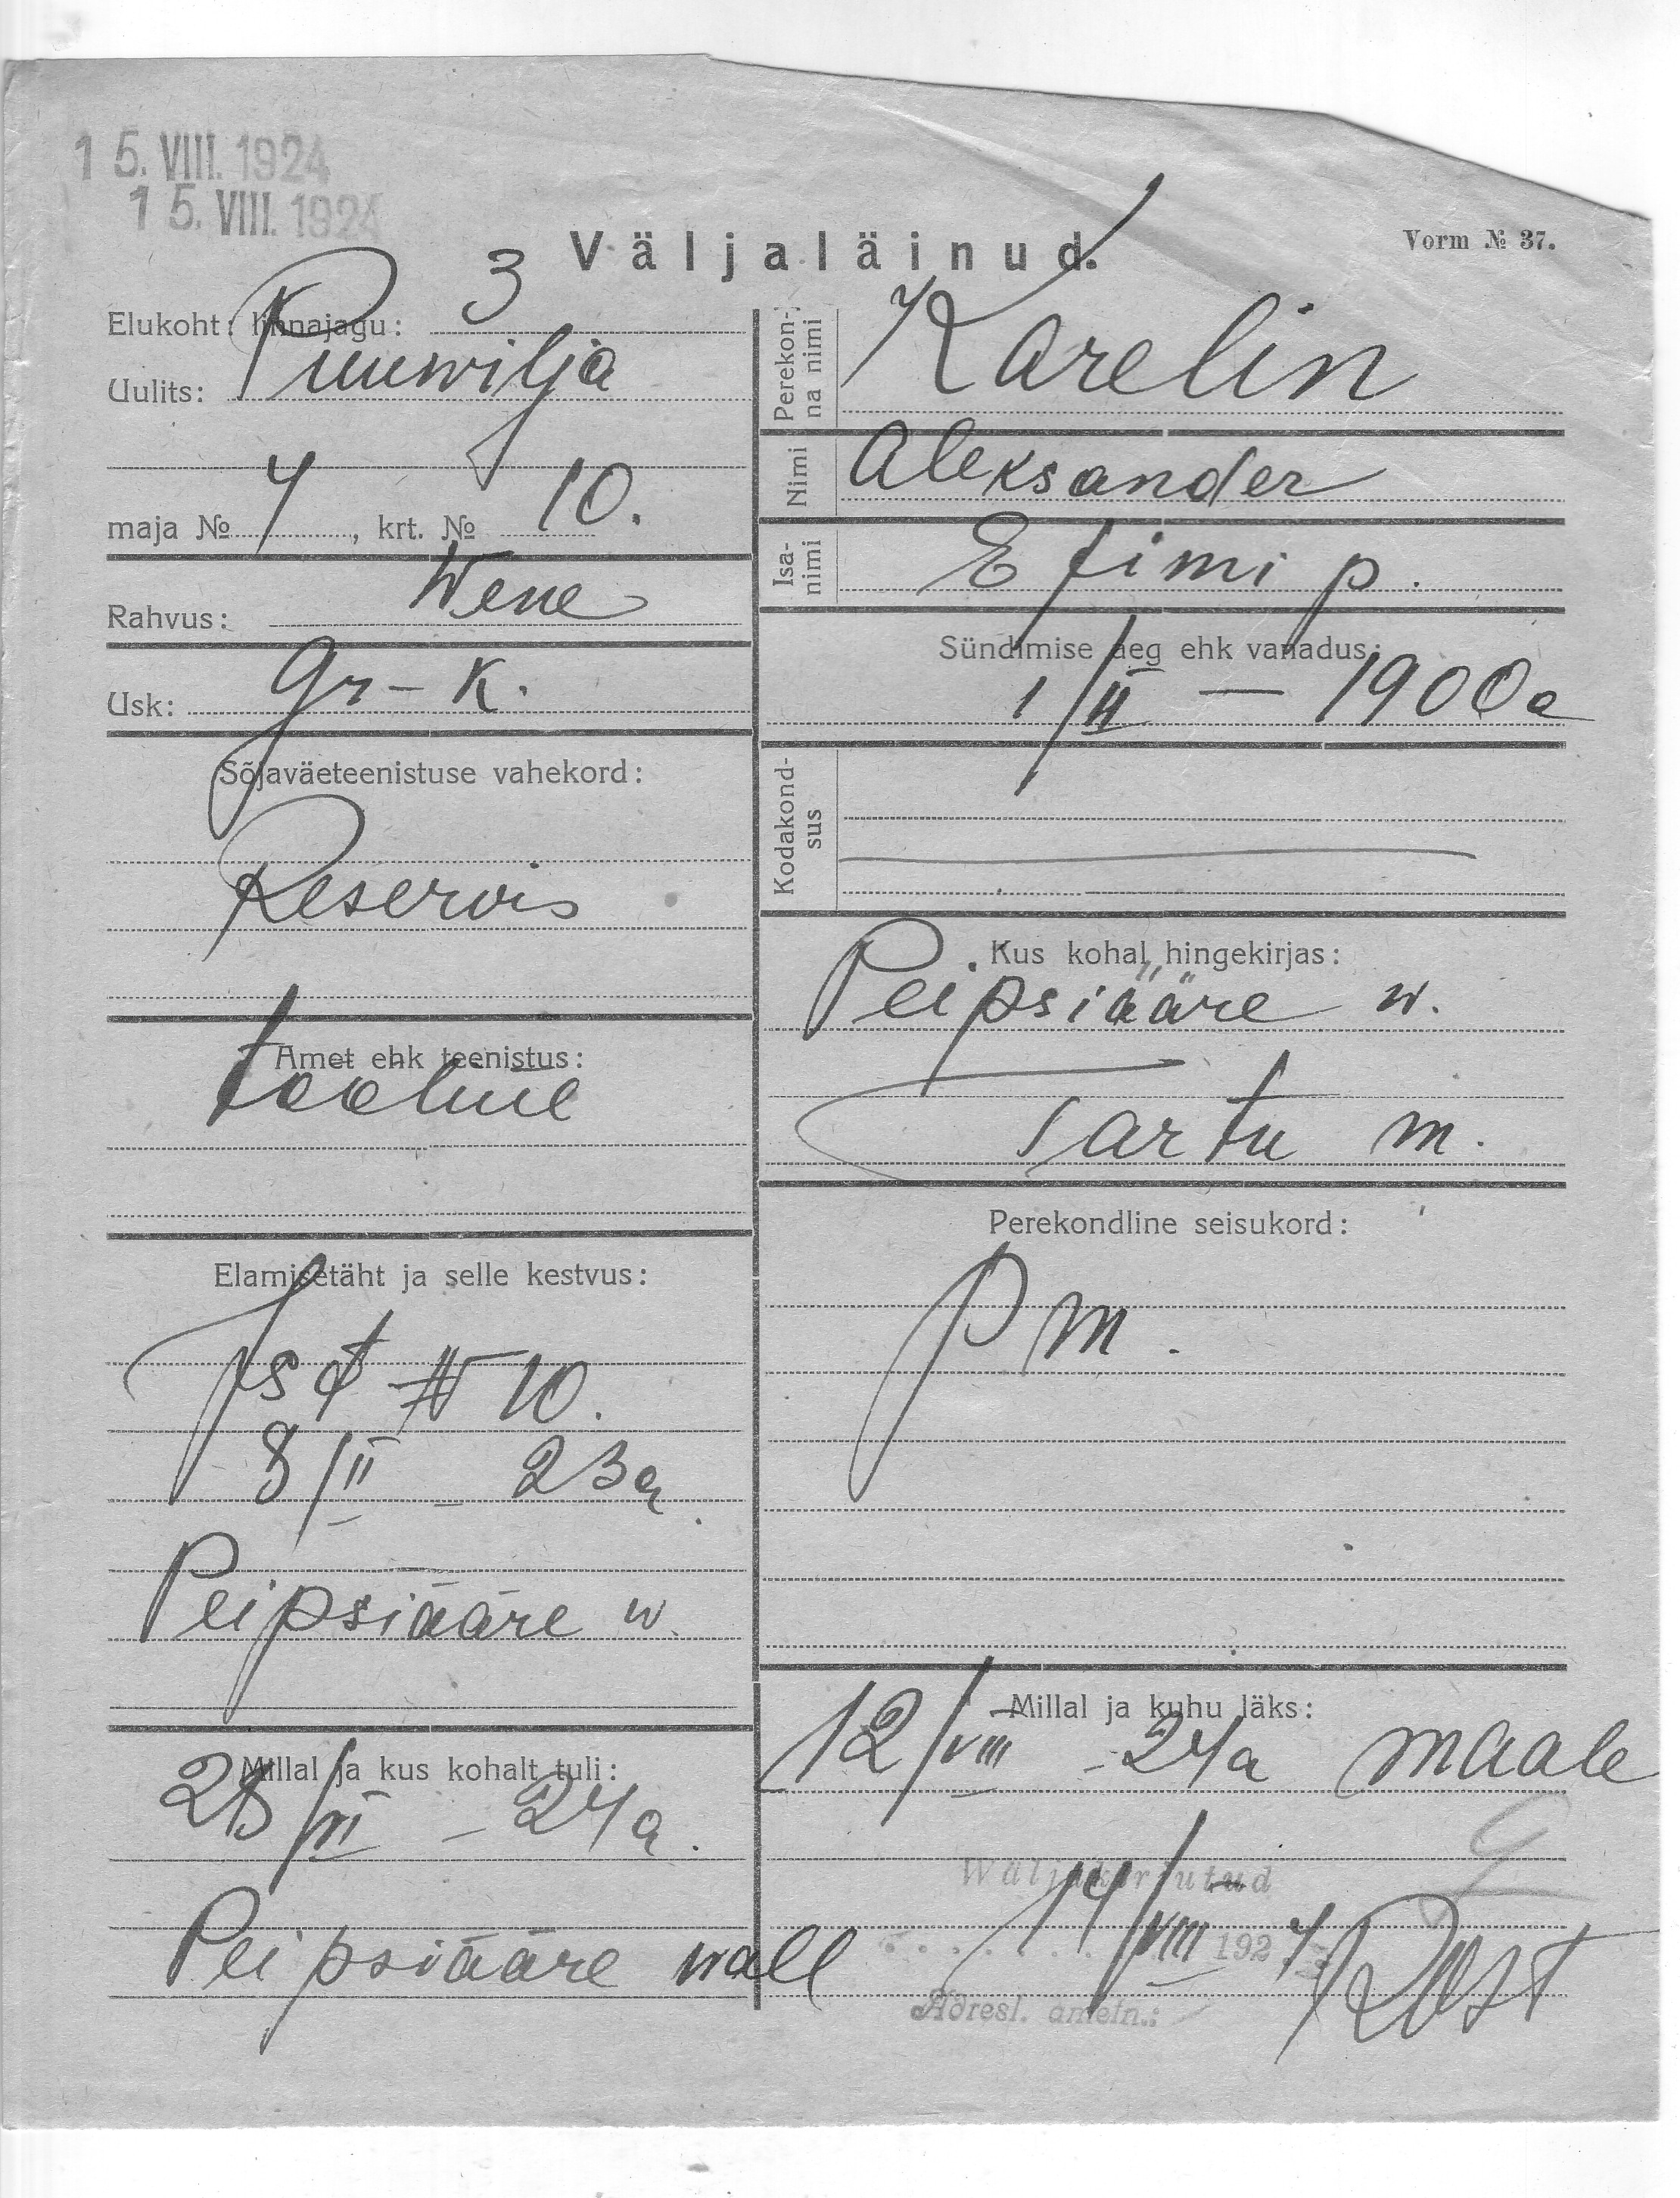 15. VIII. 1924
15. VIII. 1924
Väljaläinud.
Vorm № 37.
Elukoht: linnajagu: 3
Uulits: Puuwilja
maja № 4, krt. № 10.
Rahvus: Wene
Usk: gr-k.
Sõjaväeteenistuse vahekord:
Reservis
Amet ehk teenistus:
tööline
Elamisetäht ja selle kestvus:
№ 10.
8/II - 23a.
Peipsiääre w.
Millal ja kus kohalt tuli:
28/VI - 24a.
Peipsiääre wall
Perekonna nimi Karelin
Nimi Aleksander
Isanimi Efimi p.
Sündimise aeg ehk vanadus:
1/II — 1900a
Kodakondsus
Kus kohal hingekirjas:
Peipsiääre w.
Tartu m.
Perekondline seisukord:
pm.
Millal ja kuhu läks:
12/VIII - 24a maale
Wäljakirjutud
14/VIII 1924
Adresl. ametn.: